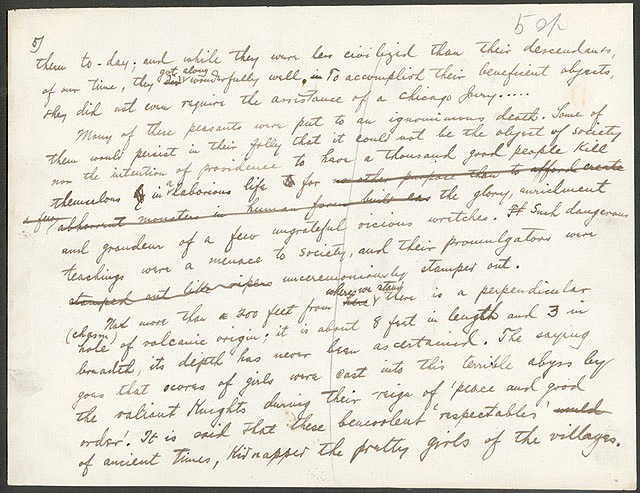 5)
them to-day; and while they were less civilized than their descendants,
of our time, they got along wonderfully well, in To accomplish their beneficient objects,
they did not even require the assistance of a Chicago Jury.....
Many of these peasants were put to an ignominious death. Some of
them would persist in their folly that it could not be the object of society
nor the intention of providence to have a thousand good people kill
themselves in a laborious life for no other purpose than to afford create
a few abhorrent monsters in human form the glory, enrichment
and grandeur of a few ungrateful vicious wretches. Such dangerous
teachings were a menace to society, and their promulgators were
stamped out like vipers unceremoniously stamped out.
Not more than 200 feet from where we stand there is a perpendicular
(chasm) hole of volcanic origin; it is about 8 feet in length and 3 in
breadth, its depth has never been ascertained. The saying
goes that scores of girls were cast into this terrible abyss by
the valiant Knights during their reign of 'peace and good
order.' It is said that these benevolent 'respectables' would
of ancient times, kidnapped the pretty girls of the villages.